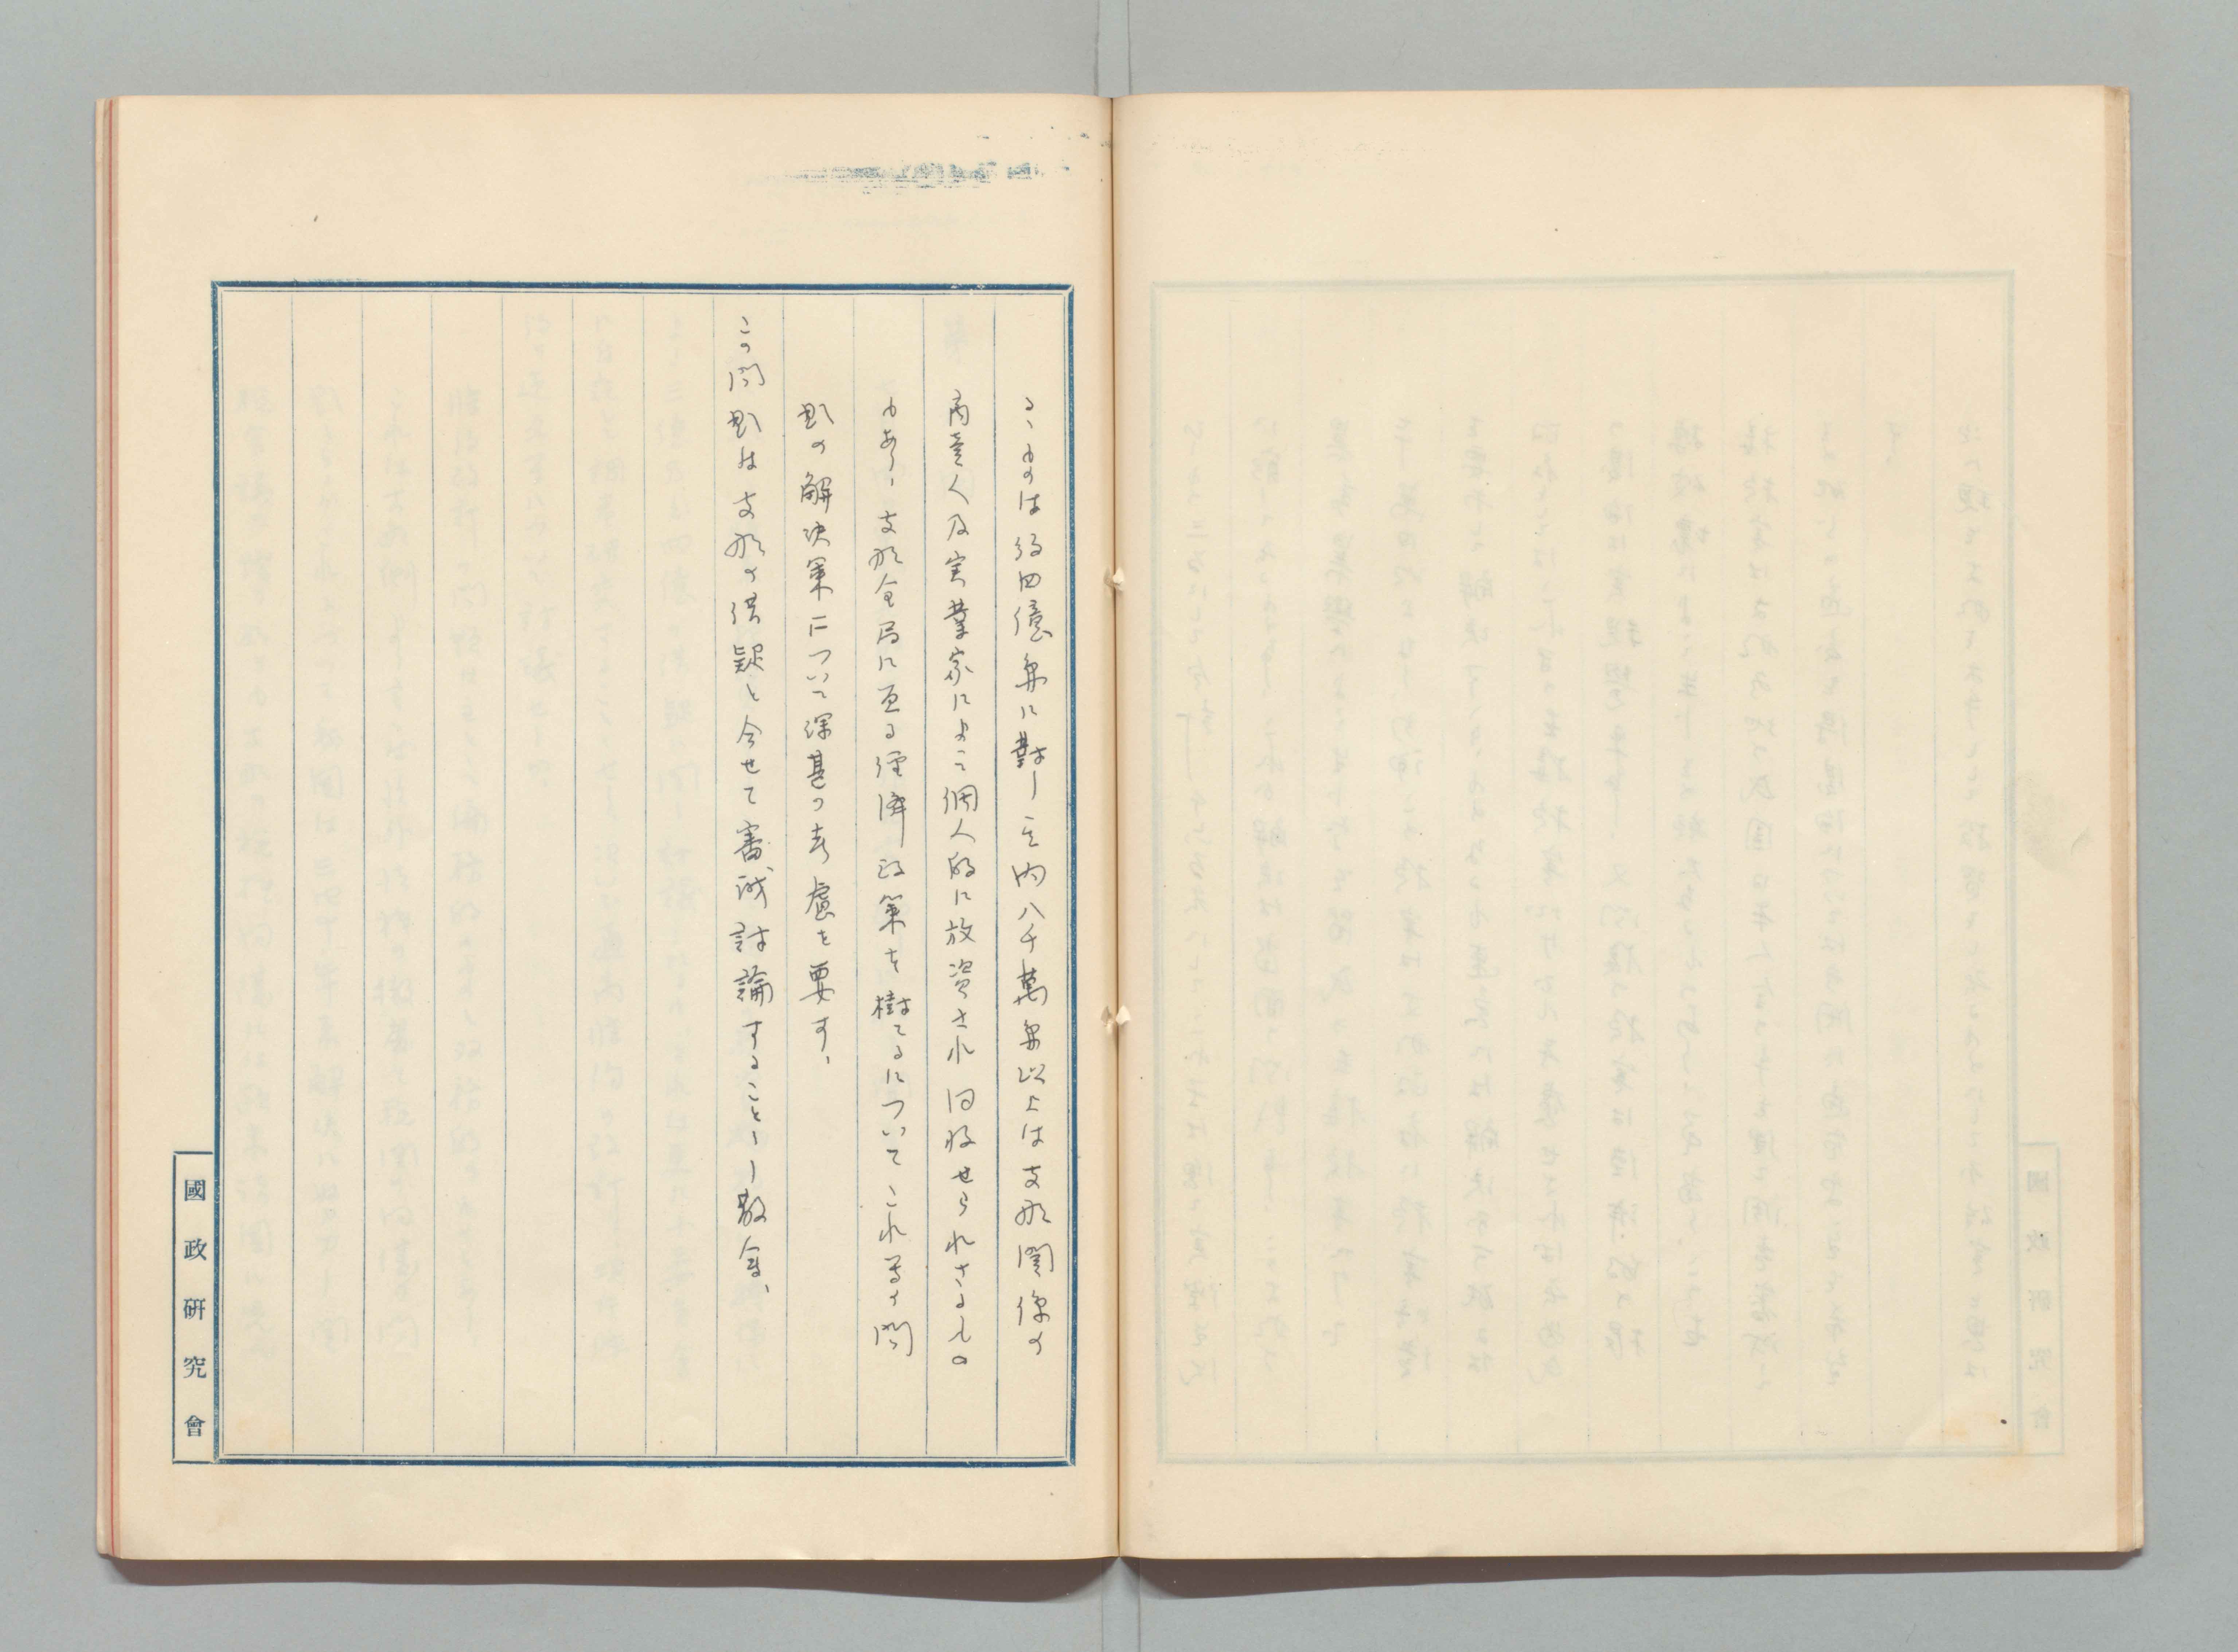 るものは約四億弗に對し其内八千萬弗以上は支那関係の
商売人及実業家によって個人的に放資され回収せられさるもの
もあり、支那全局に亘る経済政策を樹てるについてこれ等の問
題の解決策について深甚の考慮を要す、
この問題は支那の借款と合せて審議討論することゝし散會、
國政研究會